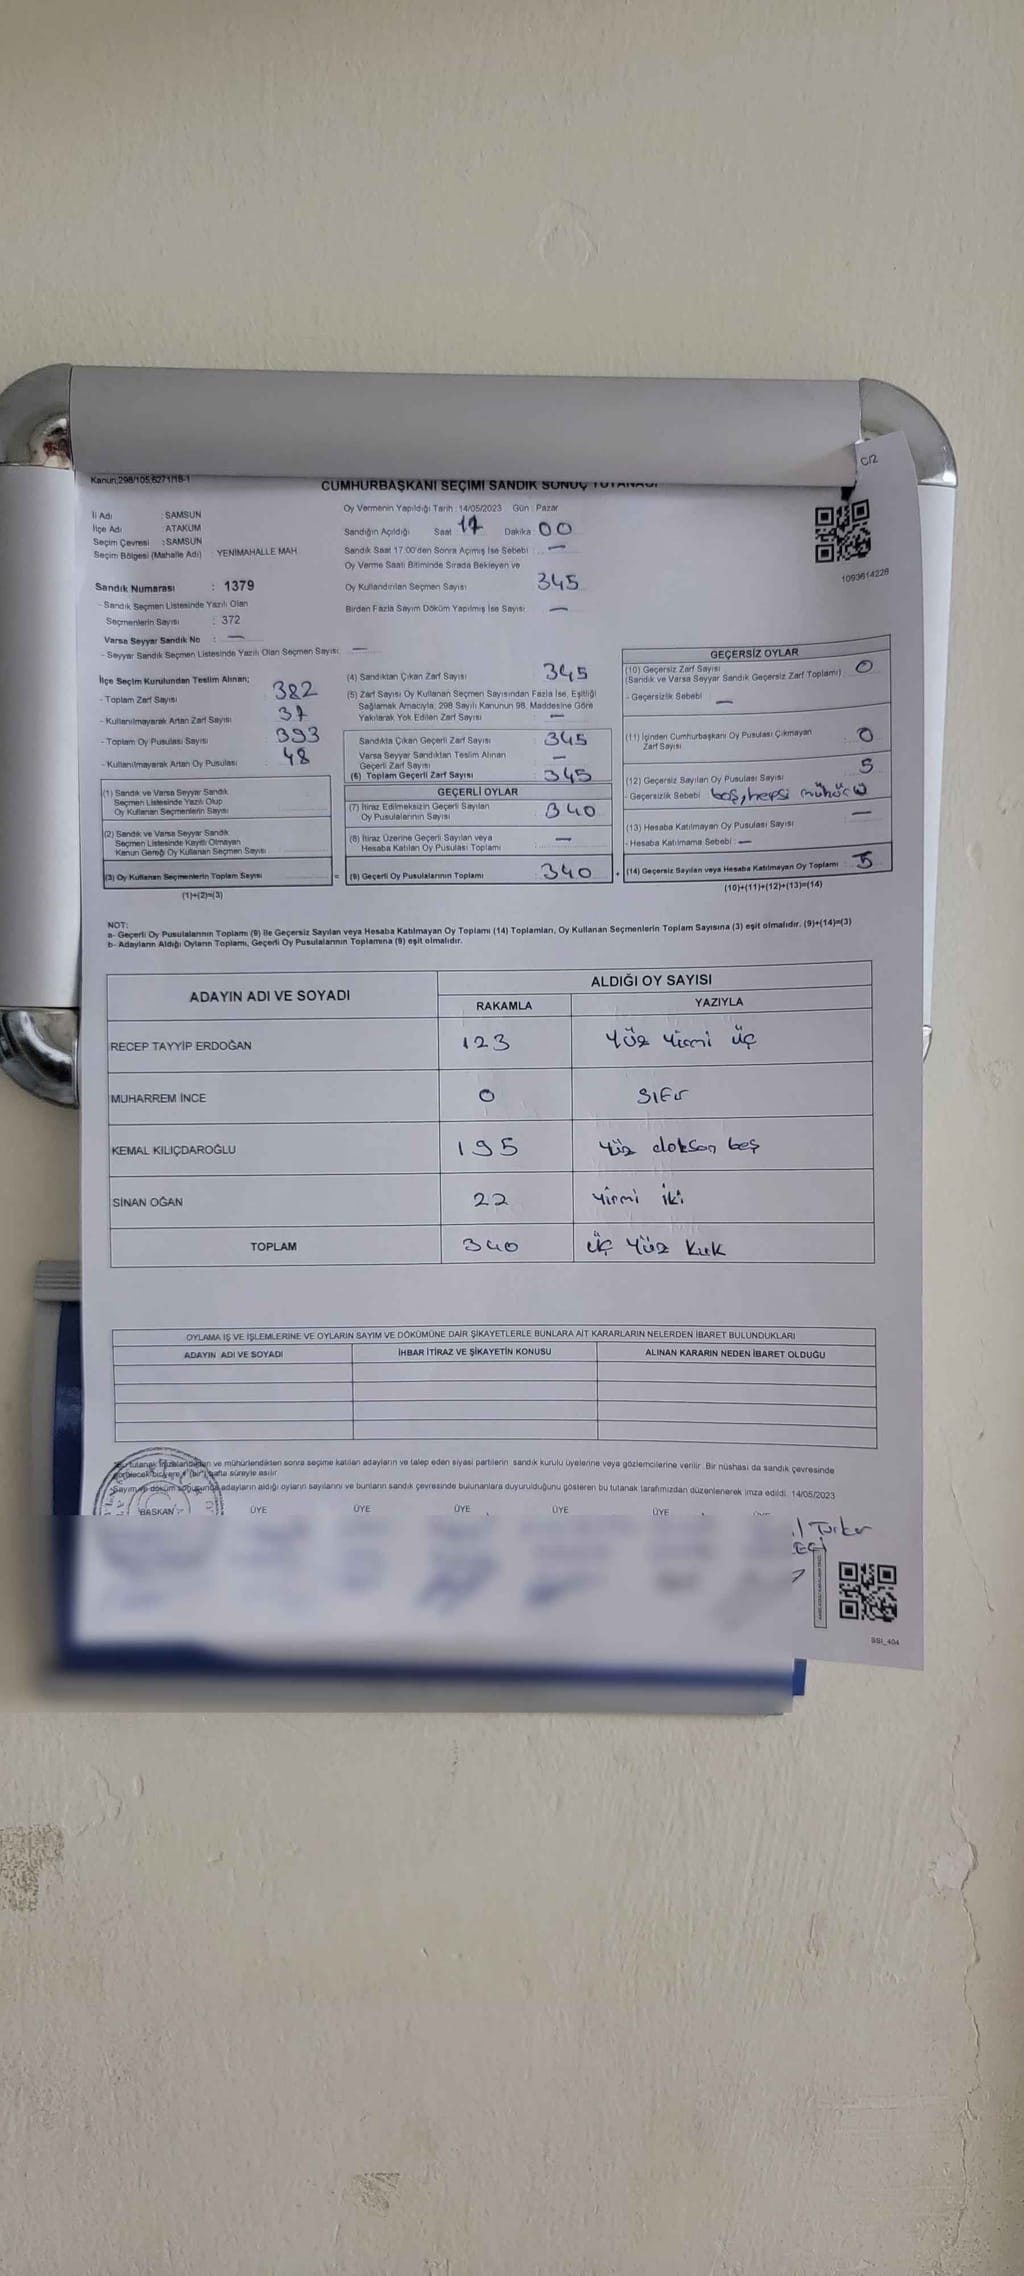 Kanun;298/105,6271/18-1
C/2
CUMHURBAŞKANI SEÇİMİ SANDIK SONUÇ TUTANAĞI
İl Adı : SAMSUN
İlçe Adı : ATAKUM
Seçim Çevresi : SAMSUN
Seçim Bölgesi (Mahalle Adı) : YENİMAHALLE MAH.
Oy Vermenin Yapıldığı Tarih : 14/05/2023 Gün : Pazar
Sandığın Açıldığı Saat 17 Dakika 00
Sandık Saat 17:00'den Sonra Açımış İse Sebebi : —
Oy Verme Saati Bitiminde Sırada Bekleyen ve
Oy Kullandırılan Seçmen Sayısı : 345
Birden Fazla Sayım Döküm Yapılmış İse Sayısı : —
1093614228
Sandık Numarası : 1379
- Sandık Seçmen Listesinde Yazılı Olan
Seçmenlerin Sayısı : 372
Varsa Seyyar Sandık No : —
- Seyyar Sandık Seçmen Listesinde Yazılı Olan Seçmen Sayısı: —
İlçe Seçim Kurulundan Teslim Alınan;
- Toplam Zarf Sayısı 382
- Kullanılmayarak Artan Zarf Sayısı 37
- Toplam Oy Pusulası Sayısı 393
- Kullanılmayarak Artan Oy Pusulası 48
(1) Sandık ve Varsa Seyyar Sandık
Seçmen Listesinde Yazılı Olup
Oy Kullanan Seçmenlerin Sayısı
(2) Sandık ve Varsa Seyyar Sandık
Seçmen Listesinde Kayıtlı Olmayan
Kanun Gereği Oy Kullanan Seçmen Sayısı
(3) Oy Kullanan Seçmenlerin Toplam Sayısı
(1)+(2)=(3)
(4) Sandıktan Çıkan Zarf Sayısı 345
(5) Zarf Sayısı Oy Kullanan Seçmen Sayısından Fazla İse, Eşitliği
Sağlamak Amacıyla, 298 Sayılı Kanunun 98. Maddesine Göre
Yakılarak Yok Edilen Zarf Sayısı : —
Sandıkta Çıkan Geçerli Zarf Sayısı : 345
Varsa Seyyar Sandıktan Teslim Alınan
Geçerli Zarf Sayısı : —
(6) Toplam Geçerli Zarf Sayısı : 345
GEÇERLİ OYLAR
(7) İtiraz Edilmeksizin Geçerli Sayılan
Oy Pusulalarının Sayısı : 340
(8) İtiraz Üzerine Geçerli Sayılan veya
Hesaba Katılan Oy Pusulası Toplamı : —
= (9) Geçerli Oy Pusulalarının Toplamı : 340
GEÇERSİZ OYLAR
(10) Geçersiz Zarf Sayısı
(Sandık ve Varsa Seyyar Sandık Geçersiz Zarf Toplamı) 0
- Geçersizlik Sebebi : —
(11) İçinden Cumhurbaşkanı Oy Pusulası Çıkmayan
Zarf Sayısı 0
(12) Geçersiz Sayılan Oy Pusulası Sayısı 5
- Geçersizlik Sebebi boş, hepsi mühürlü
(13) Hesaba Katılmayan Oy Pusulası Sayısı —
- Hesaba Katılmama Sebebi : —
+ (14) Geçersiz Sayılan veya Hesaba Katılmayan Oy Toplamı : 5
(10)+(11)+(12)+(13)=(14)
NOT:
a- Geçerli Oy Pusulalarının Toplamı (9) ile Geçersiz Sayılan veya Hesaba Katılmayan Oy Toplamı (14) Toplamları, Oy Kullanan Seçmenlerin Toplam Sayısına (3) eşit olmalıdır. (9)+(14)=(3)
b- Adayların Aldığı Oyların Toplamı, Geçerli Oy Pusulalarının Toplamına (9) eşit olmalıdır.
ADAYIN ADI VE SOYADI ALDIĞI OY SAYISI
RAKAMLA YAZIYLA
RECEP TAYYİP ERDOĞAN 123 Yüz Yirmi üç
MUHARREM İNCE 0 Sıfır
KEMAL KILIÇDAROĞLU 195 Yüz doksan beş
SİNAN OĞAN 22 Yirmi iki
TOPLAM 340 üç Yüz kırk
OYLAMA İŞ VE İŞLEMLERİNE VE OYLARIN SAYIM VE DÖKÜMÜNE DAİR ŞİKAYETLERLE BUNLARA AİT KARARLARIN NELERDEN İBARET BULUNDUKLARI
ADAYIN ADI VE SOYADI İHBAR İTİRAZ VE ŞİKAYETİN KONUSU ALINAN KARARIN NEDEN İBARET OLDUĞU
tutanak imzalandıktan ve mühürlendikten sonra seçime katılan adayların ve talep eden siyasi partilerin sandık kurulu üyelerine veya gözlemcilerine verilir. Bir nüshası da sandık çevresinde
görülecek bir yere 1 (bir) hafta süreyle asılır.
Sayım ve döküm sonucunda adayların aldığı oyların sayılarını ve bunların sandık çevresinde bulunanlara duyurulduğunu gösteren bu tutanak tarafımızdan düzenlenerek imza edildi. 14/05/2023
BAŞKAN ÜYE ÜYE ÜYE ÜYE ÜYE
Türker
SSI_404